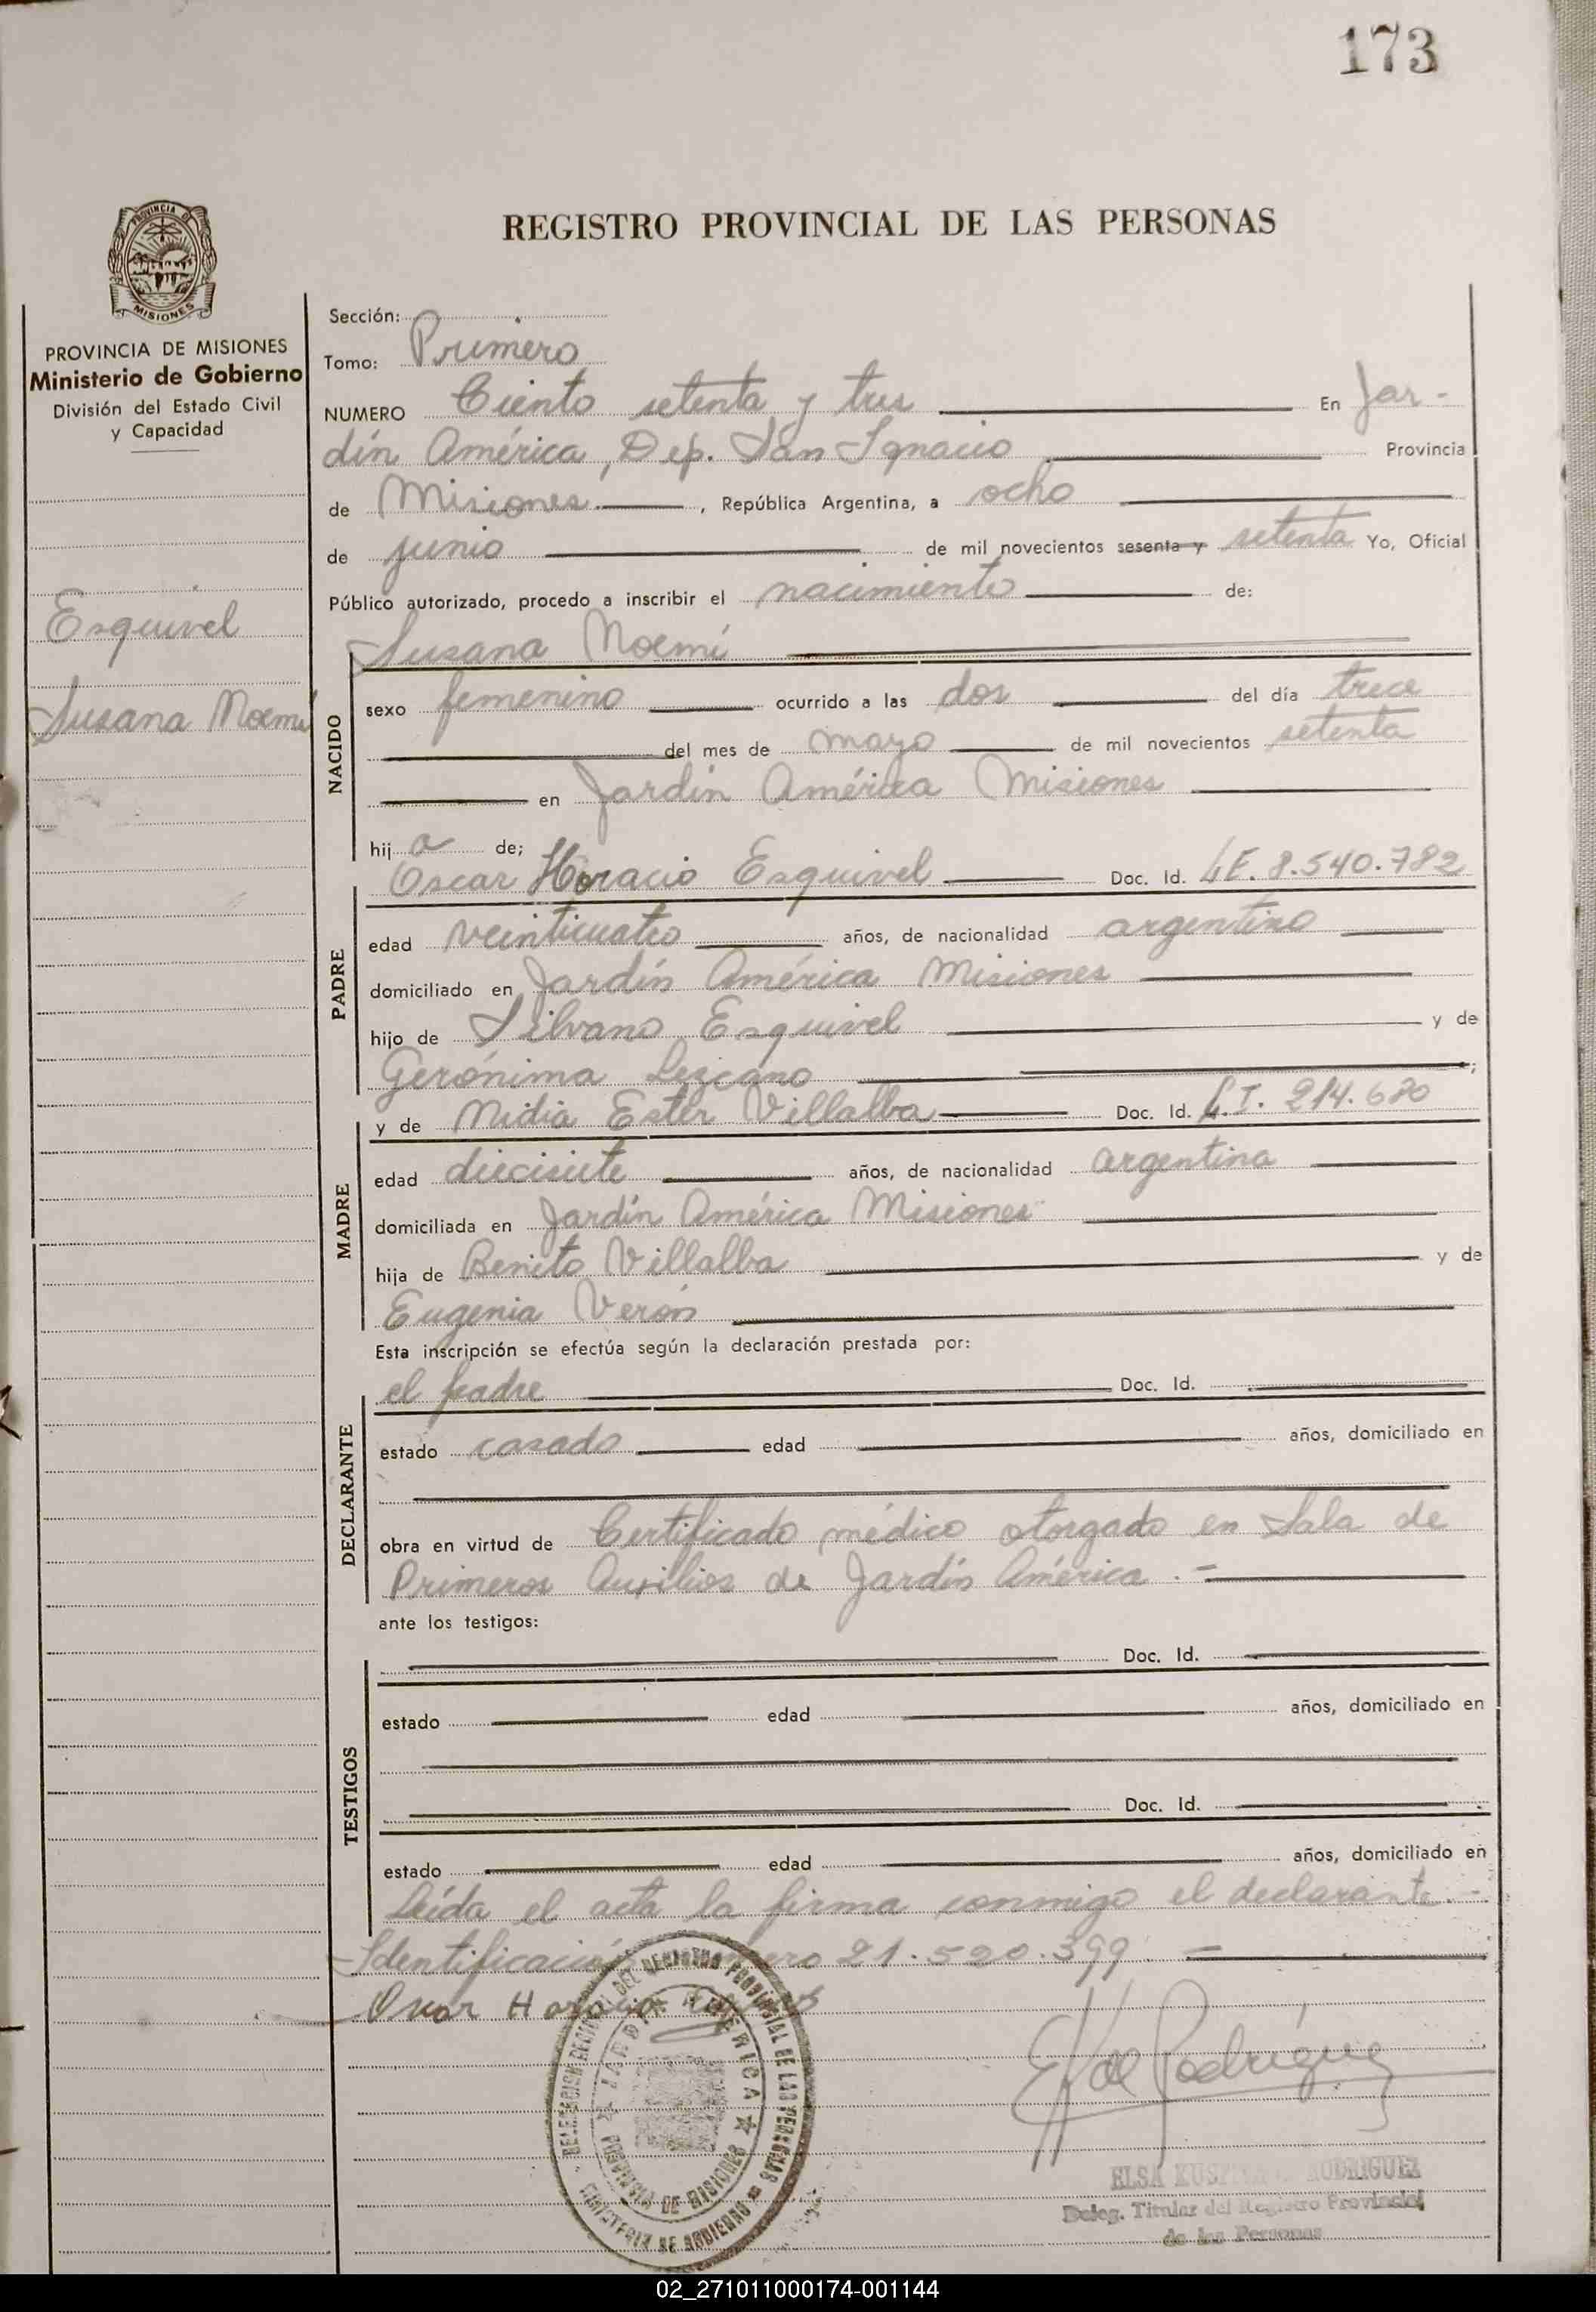 173
REGISTRO PROVINCIAL DE LAS PERSONAS
PROVINCIA DE MISIONES
Ministerio de Gobierno
División del Estado Civil
y Capacidad
Esquivel
Susana Noemí
Sección:
Tomo: Primero
NUMERO Ciento setenta y tres En Jar-
dín América, Dep. San Ignacio Provincia
de Misiones , República Argentina, a ocho
de junio de mil novecientos sesenta y setenta Yo, Oficial
Público autorizado, procedo a inscribir el nacimiento de:
Susana Noemí
NACIDO
sexo femenino ocurrido a las dos del día trece
del mes de mayo de mil novecientos setenta
en Jardín América Misiones
hij a de;
Oscar Horacio Esquivel Doc. Id. L.E. 8.540.782
PADRE
edad veinticuatro años, de nacionalidad argentino
domiciliado en Jardín América Misiones
hijo de Silvano Esquivel y de
Gerónima Lezcano ;
y de Nidia Ester Villalba Doc. Id. C.I. 214.680
MADRE
edad diecisiete años, de nacionalidad argentina
domiciliada en Jardín América Misiones
hija de Benito Villalba y de
Eugenia Verón
Esta inscripción se efectúa según la declaración prestada por:
el padre Doc. Id.
DECLARANTE
estado casado edad años, domiciliado en
obra en virtud de Certificado médico otorgado en Sala de
Primeros Auxilios de Jardín América .-
ante los testigos:
Doc. Id.
TESTIGOS
estado edad años, domiciliado en
Doc. Id.
estado edad años, domiciliado en
Leída el acta la firma conmigo el declarante.-
Identificación 21.520.399 -
Oscar Horacio
DELEGACION REGIONAL DEL REGISTRO PROVINCIAL DE LAS PERSONAS
MINISTERIO DE GOBIERNO
JARDIN AMERICA
PROVINCIA DE MISIONES
E K de Rodríguez
ELSA RODRIGUEZ
Deleg. Titular del Registro Provincial
de las Personas
02_271011000174-001144